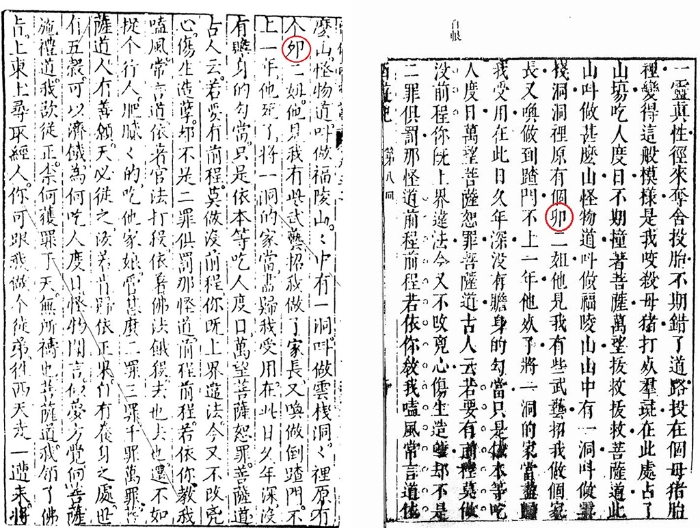 一靈真性徑來奪舍投胎不期錯了道路投在個母豬胎
裡變得這般模樣是我咬殺母豬打死羣彘在此處占了
山塲吃人度日不期撞着菩薩萬望拔救拔救菩薩道此
山叫做甚麼山怪物道叫做福陵山山中有一洞叫做雲
棧洞洞裡原有個卯二姐他見我有些武藝招我做個家
長又喚做到蹅門不上一年他死了將一洞的家當盡歸
我受用在此日久年深没有贍身的勾當只是依本等吃
人度日萬望菩薩恕罪菩薩道古人云若要有前程莫做
没前程你既上界違法今又不改兇心傷生造孽却不是
二罪俱罰那怪道前程前程若依你教我嗑風常言道依
西遊記 第八回
麼山怪物道叫做福陵山〻中有一洞叫做雲棧洞〻裡原有
个卯二姐他見我有些武藝招我做了家長又喚做倒蹅門不
上一年他死了將一洞的家當盡歸我受用在此日久年深没
有贍身的勾當只是依本等吃人度日萬望菩薩恕罪菩薩道
古人云若要有前程莫做没前程你既上界違法今又不改兇
心傷生造孽却不是二罪俱罰那怪道前程前程若依你教我
嗑風常言道依着官法打殺依着佛法餓殺去也去也還不如
捉个行人肥膩〻的吃他家娘管甚麽二罪三罪千罪萬罪菩
薩道人有善願天必從之汝若肯歸依正果自有養身之處世
有五穀可以濟饑為何吃人度日怪物聞言似夢方覺向菩薩
施禮道我欲從正奈何獲罪于天無所禱也菩薩道我領了佛
旨上東土尋取經人你可跟我做个徒弟往西天走一遭來將